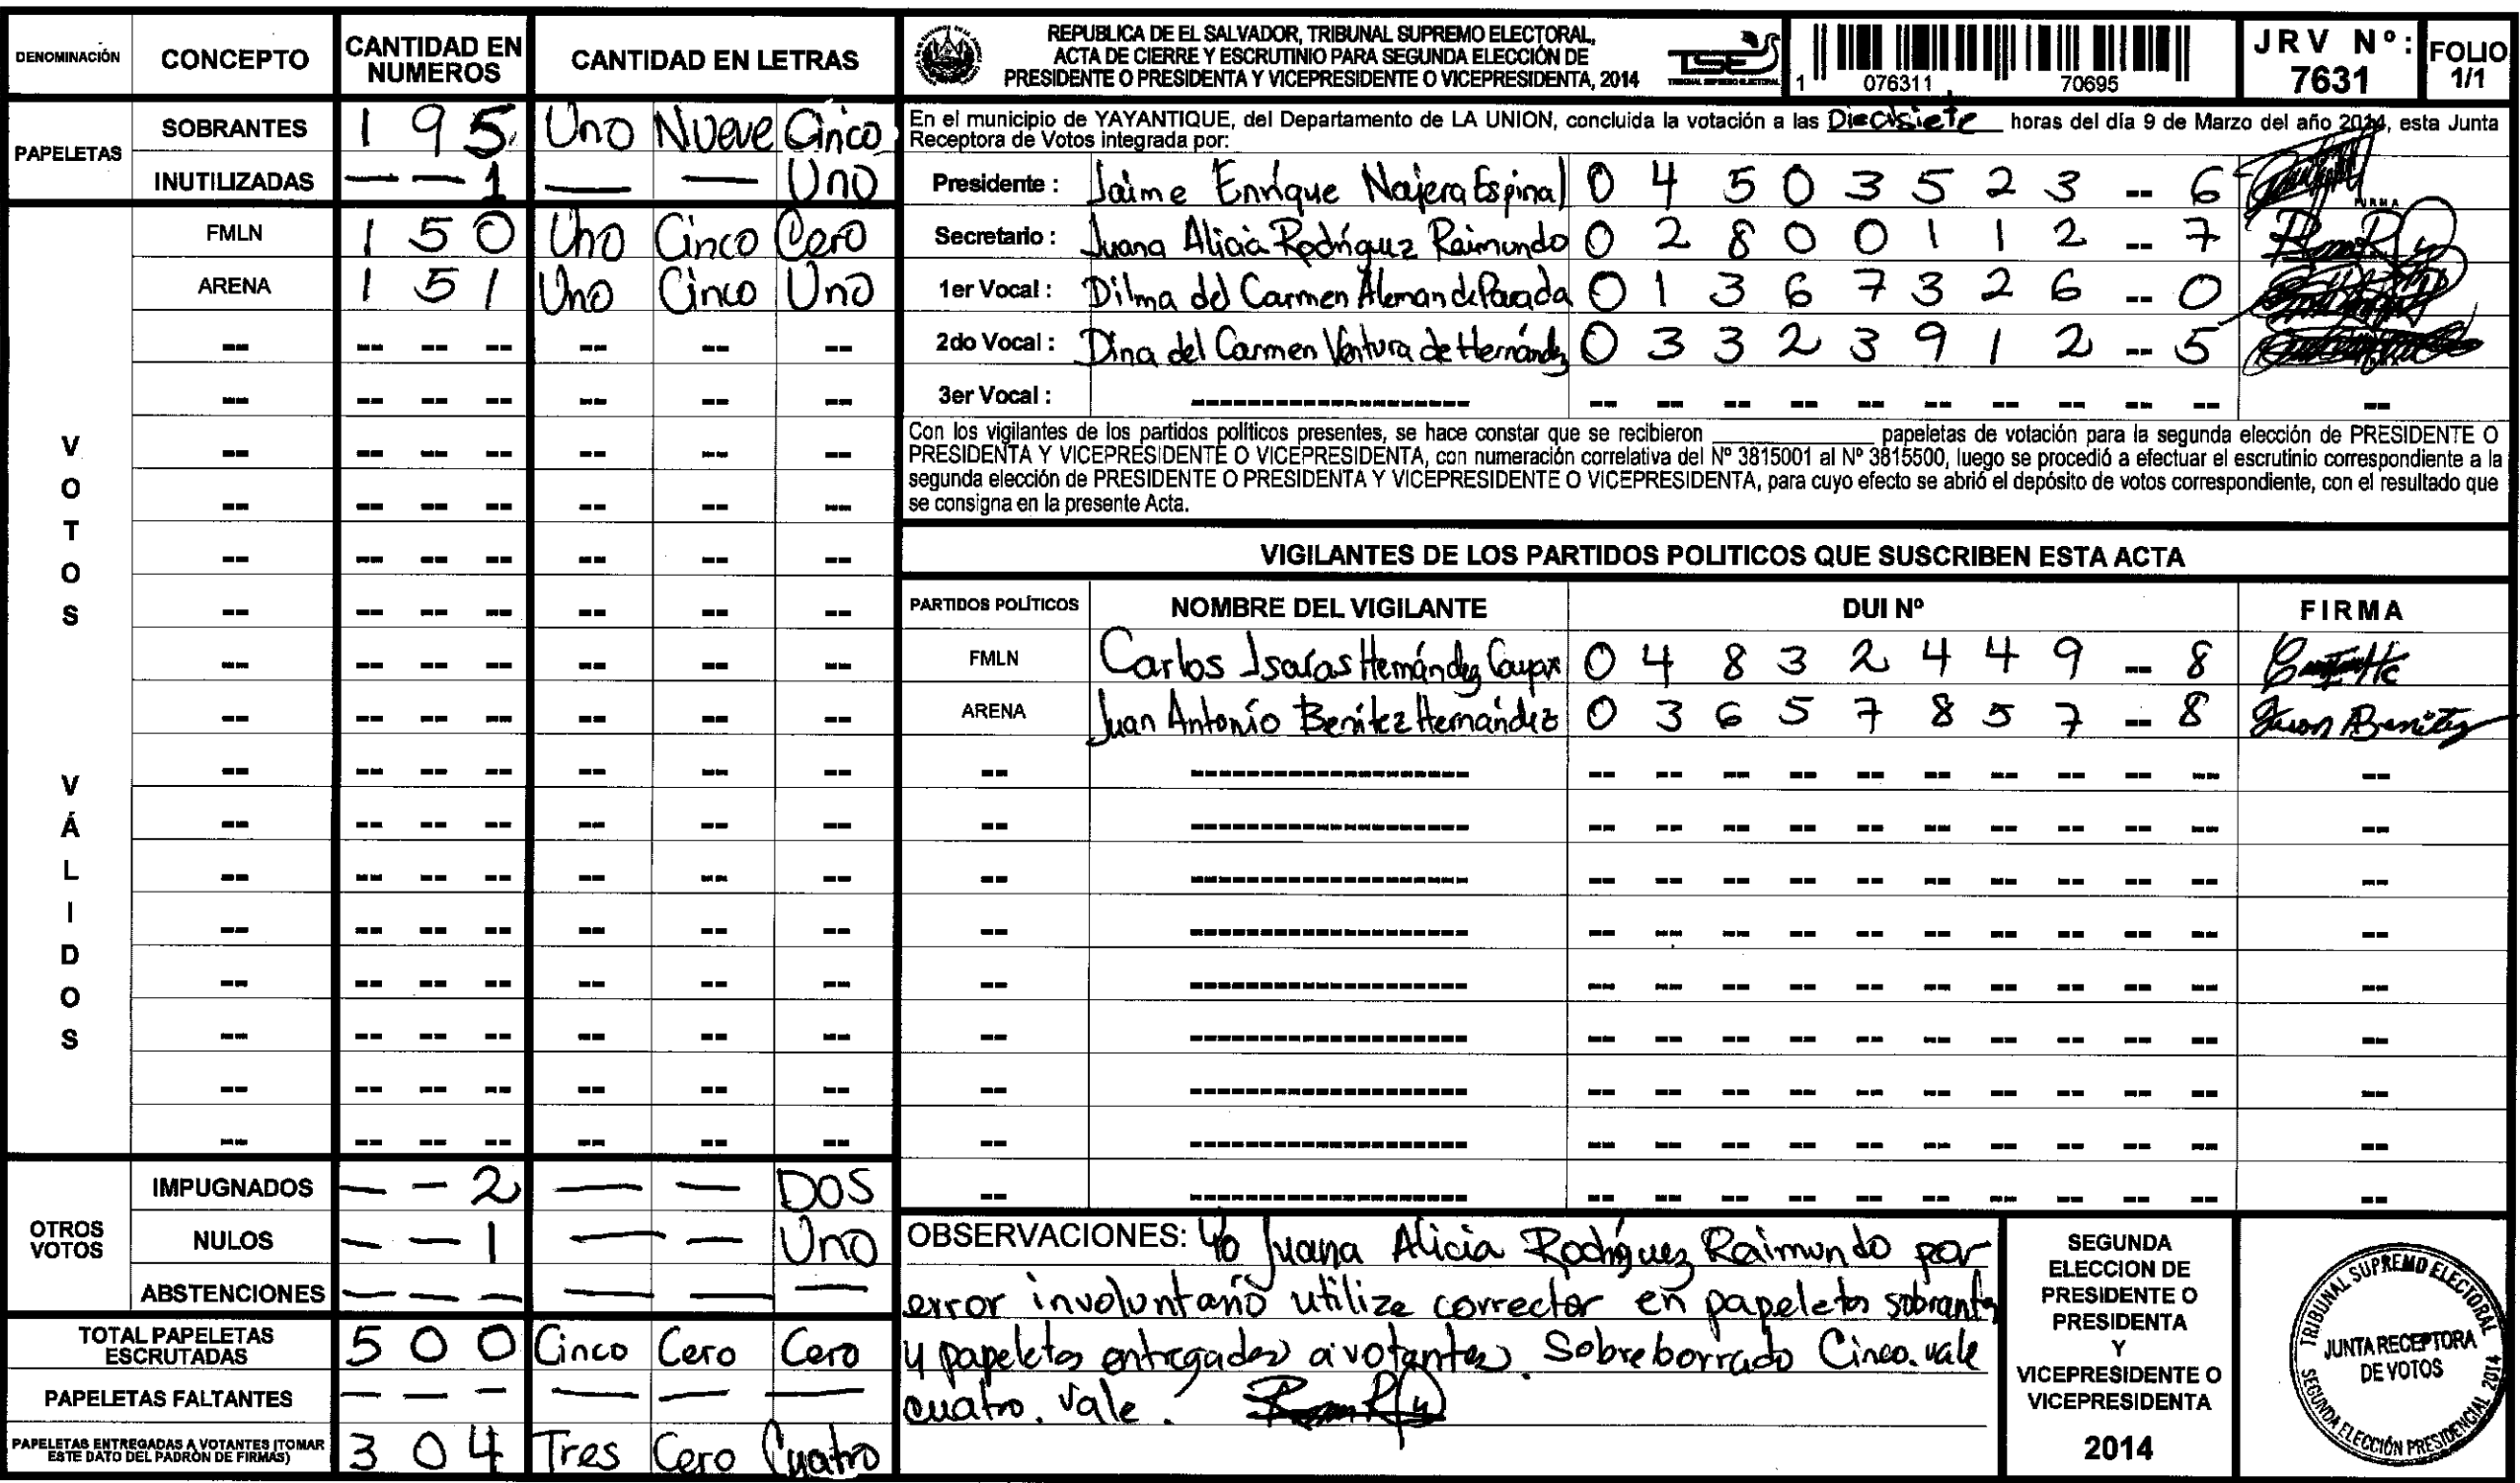 DENOMINACIÓN CONCEPTO CANTIDAD EN NUMEROS CANTIDAD EN LETRAS
PAPELETAS
SOBRANTES 1 9 5 Uno Nueve Cinco
INUTILIZADAS — — 1 — — Uno
VOTOS VÁLIDOS
FMLN 1 5 0 Uno Cinco Cero
ARENA 1 5 1 Uno Cinco Uno
OTROS VOTOS
IMPUGNADOS — — 2 — — DOS
NULOS — — 1 — — Uno
ABSTENCIONES — — — — — —
TOTAL PAPELETAS ESCRUTADAS 5 0 0 Cinco Cero Cero
PAPELETAS FALTANTES — — — — — —
PAPELETAS ENTREGADAS A VOTANTES (TOMAR ESTE DATO DEL PADRÓN DE FIRMAS) 3 0 4 Tres Cero Cuatro
REPUBLICA DE EL SALVADOR, TRIBUNAL SUPREMO ELECTORAL,
ACTA DE CIERRE Y ESCRUTINIO PARA SEGUNDA ELECCIÓN DE
PRESIDENTE O PRESIDENTA Y VICEPRESIDENTE O VICEPRESIDENTA, 2014
TSE
TRIBUNAL SUPREMO ELECTORAL
1 076311 70695
JRV Nº: 7631
FOLIO 1/1
En el municipio de YAYANTIQUE, del Departamento de LA UNION, concluida la votación a las Diecisiete horas del día 9 de Marzo del año 2014, esta Junta
Receptora de Votos integrada por:
Presidente : Jaime Enrique Najera Espinal 0 4 5 0 3 5 2 3 -- 6
FIRMA
Secretario : Juana Alicia Rodríguez Raimundo 0 2 8 0 0 1 1 2 -- 7
1er Vocal : Dilma del Carmen Aleman de Parada 0 1 3 6 7 3 2 6 -- 0
2do Vocal : Dina del Carmen Ventura de Hernández 0 3 3 2 3 9 1 2 -- 5
3er Vocal :
Con los vigilantes de los partidos políticos presentes, se hace constar que se recibieron ____________ papeletas de votación para la segunda elección de PRESIDENTE O
PRESIDENTA Y VICEPRESIDENTE O VICEPRESIDENTA, con numeración correlativa del Nº 3815001 al Nº 3815500, luego se procedió a efectuar el escrutinio correspondiente a la
segunda elección de PRESIDENTE O PRESIDENTA Y VICEPRESIDENTE O VICEPRESIDENTA, para cuyo efecto se abrió el depósito de votos correspondiente, con el resultado que
se consigna en la presente Acta.
VIGILANTES DE LOS PARTIDOS POLITICOS QUE SUSCRIBEN ESTA ACTA
PARTIDOS POLÍTICOS NOMBRE DEL VIGILANTE DUI Nº FIRMA
FMLN Carlos Isaías Hernández 0 4 8 3 2 4 4 9 -- 8
ARENA Juan Antonio Benítez Hernández 0 3 6 5 7 8 5 7 -- 8 Juan Benitez
OBSERVACIONES: Yo Juana Alicia Rodríguez Raimundo por
error involuntario utilize corrector en papeletas sobrantes
y papeletas entregadas a votantes. Sobreborrado Cinco. vale
cuatro. Vale.
SEGUNDA
ELECCION DE
PRESIDENTE O
PRESIDENTA
Y
VICEPRESIDENTE O
VICEPRESIDENTA
2014
TRIBUNAL SUPREMO ELECTORAL
JUNTA RECEPTORA
DE VOTOS
SEGUNDA ELECCIÓN PRESIDENCIAL 2014